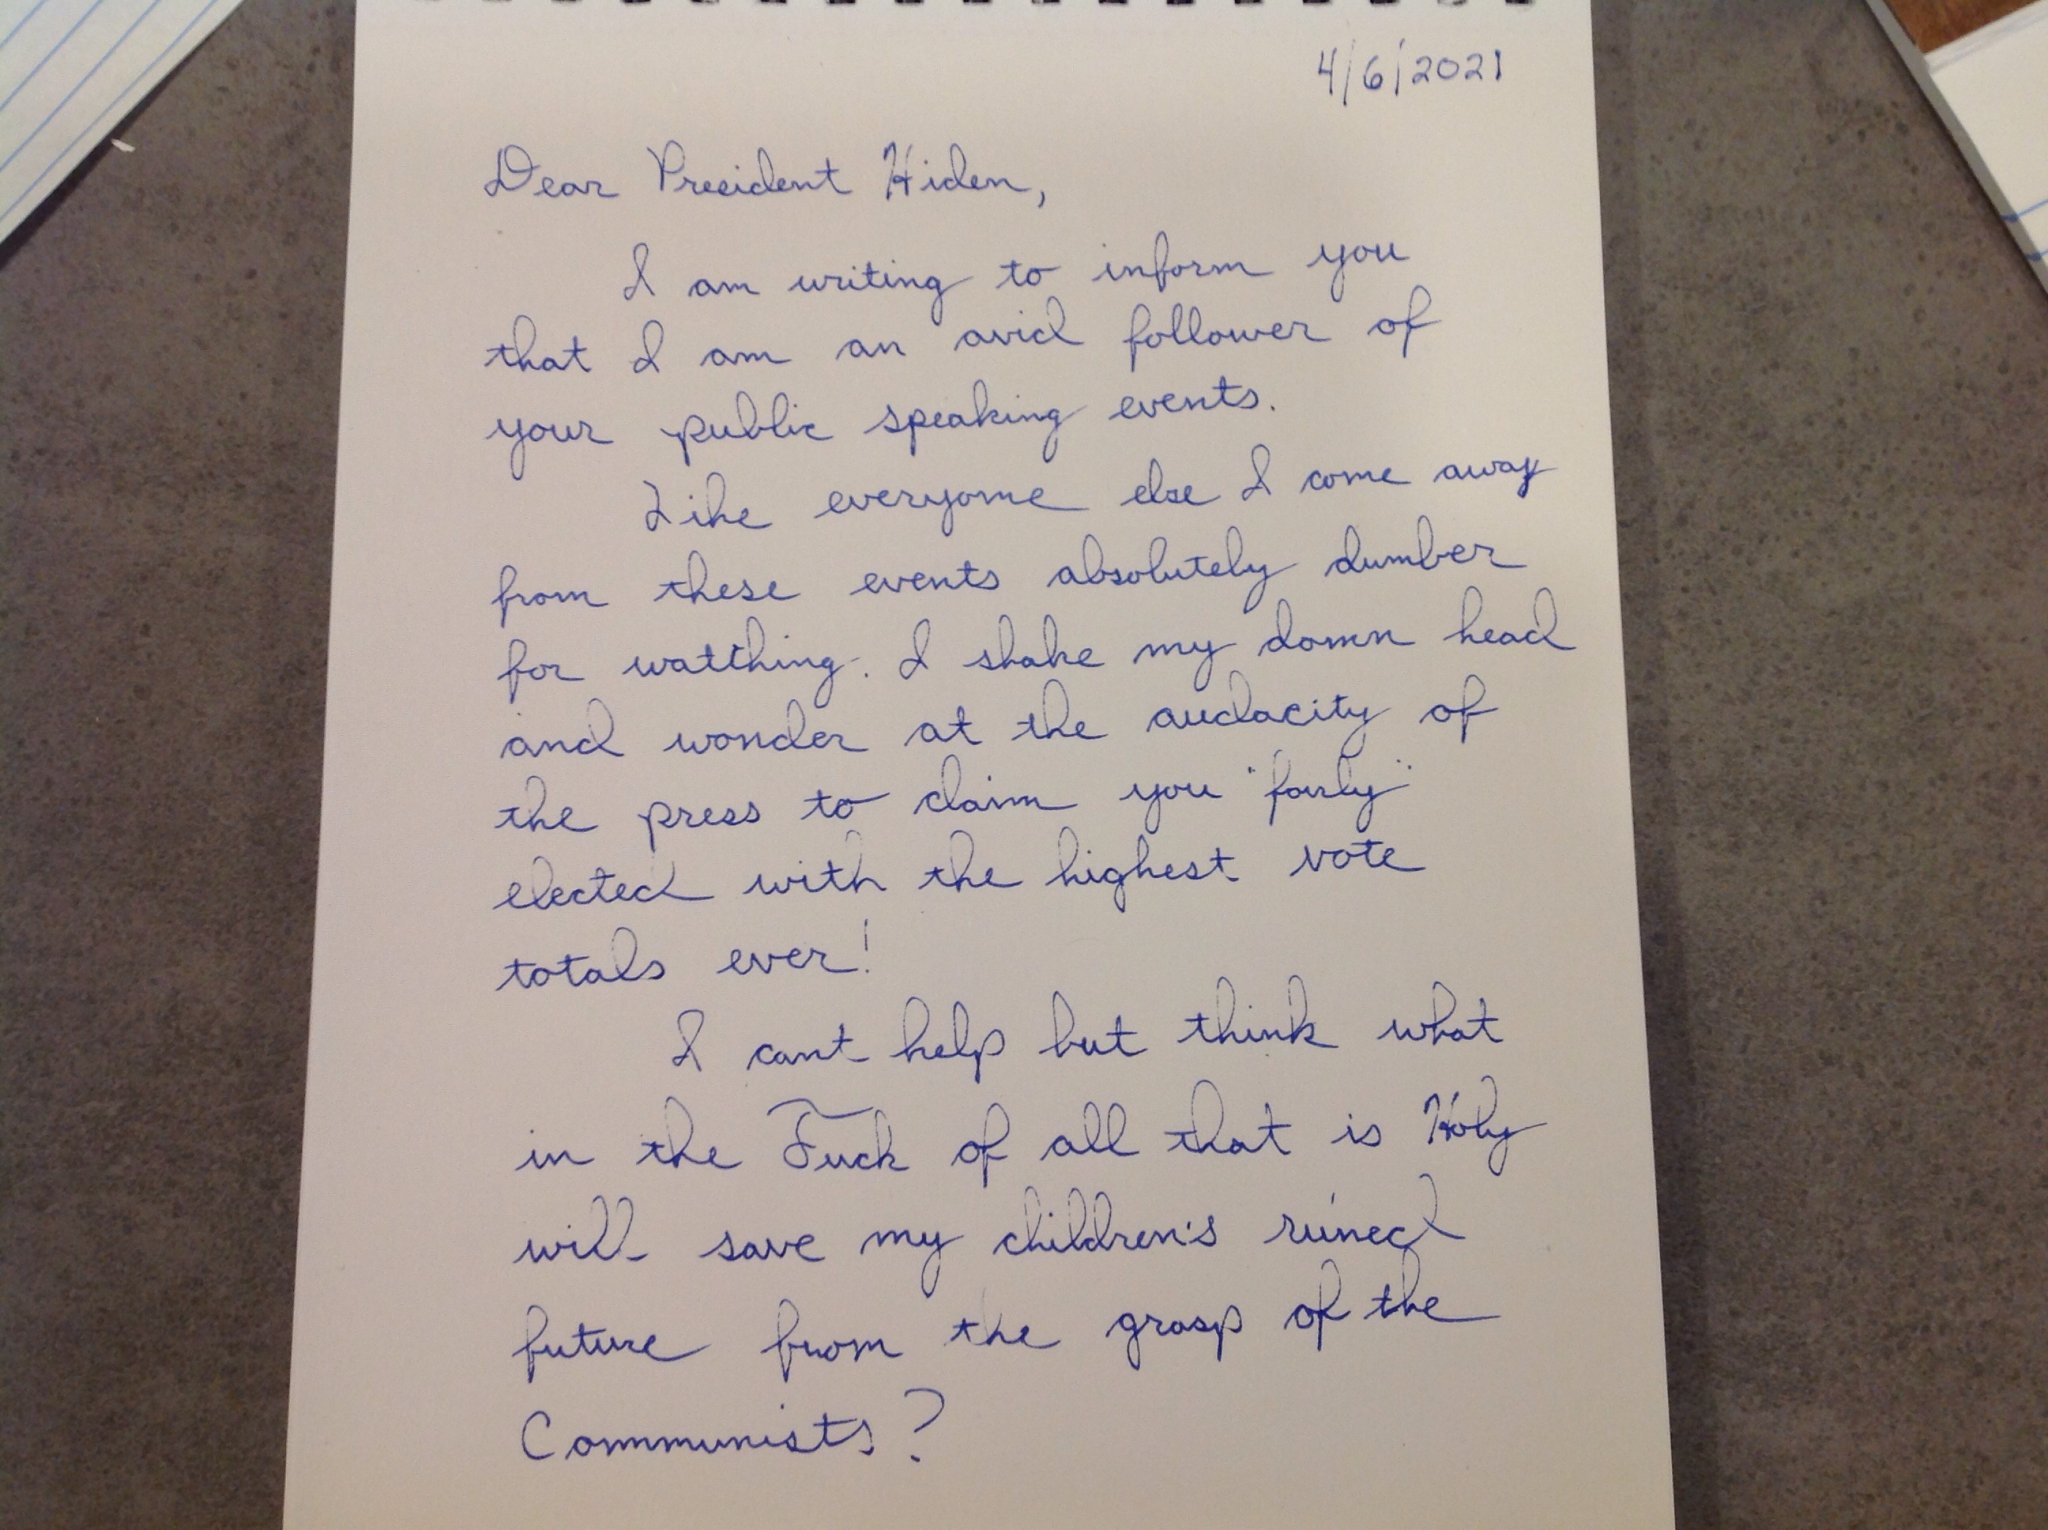 4/6/2021
Dear President Hiden,
I am writing to inform you
that I am an avid follower of
your public speaking events.
Like everyone else I come away
from these events absolutely dumber
for watching. I shake my damn head
and wonder at the audacity of
the press to claim you "fairly"
elected with the highest vote
totals ever!
I can't help but think what
in the Fuck of all that is Holy
will save my children's ruined
future from the grasp of the
Communists?